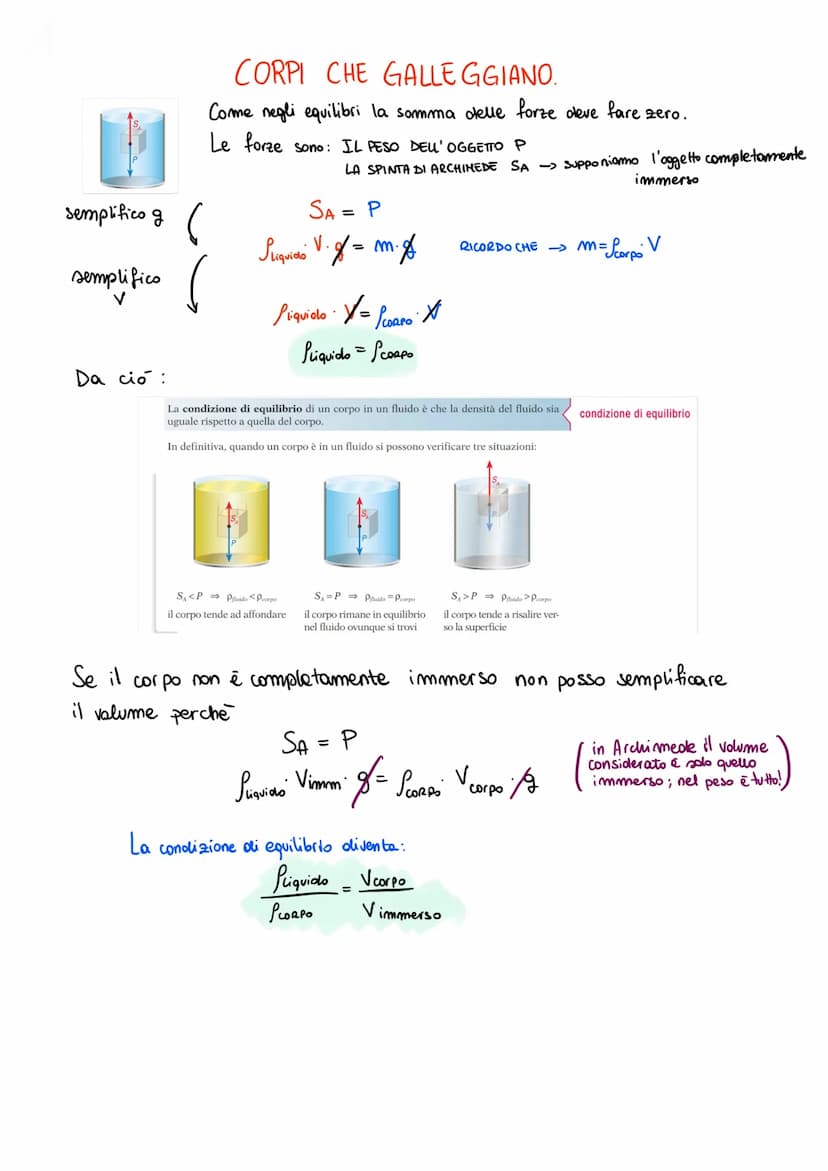 CORPI CHE GALLEGGIANO.
Come negli equilibri la somma delle forze deve fare zero.
Le forze sono: IL PESO DELL'OGGETTO P
LA SPINTA DI ARCHIMEDE SA → supponiamo l'oggetto completamente
immerso
SA
P
semplifico g
SA = P
ρliquido · V · g = m · g
RICORDO CHE → m = ρcorpo · V
semplifico
V
ρliquido · V = ρcorpo · V
ρliquido = ρcorpo
Da ciō :
La condizione di equilibrio di un corpo in un fluido è che la densità del fluido sia
uguale rispetto a quella del corpo.
condizione di equilibrio
In definitiva, quando un corpo è in un fluido si possono verificare tre situazioni:
SA
P
SA
P
SA
P
SA < P ⇒ ρfluido < ρcorpo
il corpo tende ad affondare
SA = P ⇒ ρfluido = ρcorpo
il corpo rimane in equilibrio
nel fluido ovunque si trovi
SA > P ⇒ ρfluido > ρcorpo
il corpo tende a risalire ver-
so la superficie
Se il corpo non ē completamente immerso non posso semplificare
il volume perchē
SA = P
ρliquido · Vimm · g = ρcorpo · Vcorpo · g
( in Archimede il volume
considerato ē solo quello
immerso ; nel peso ē tutto! )
La condizione di equilibrio diventa:
ρliquido / ρcorpo = Vcorpo / Vimmerso